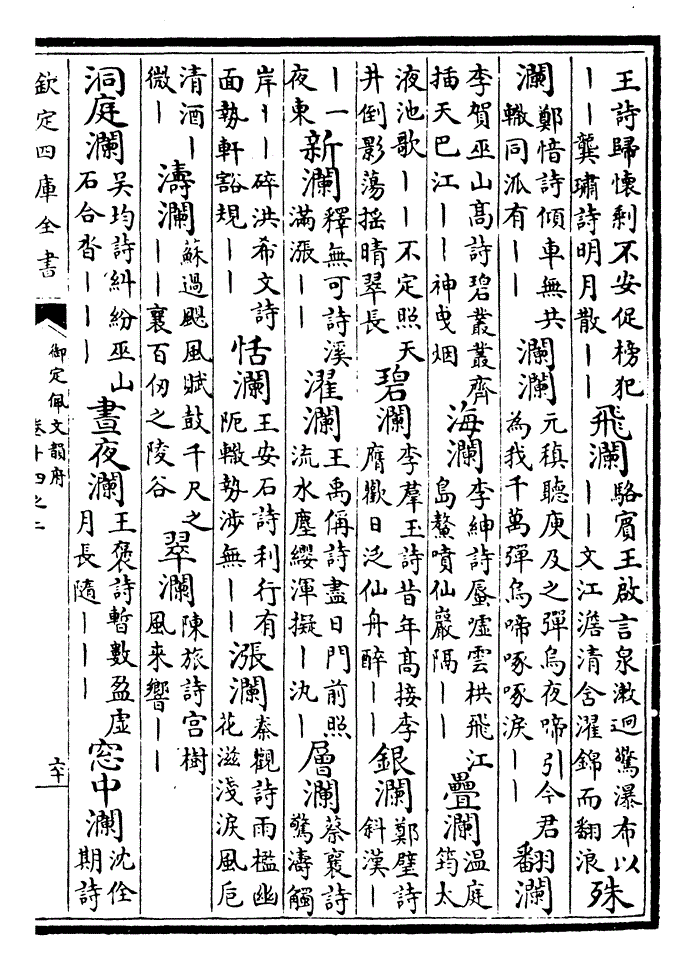 王詩歸懷剩不安促榜犯
——龔璛詩明月散——
飛瀾
駱賓王啟言泉漱迥驚瀑布以
——文江澹清含濯錦而翻浪
殊
瀾
鄭愔詩傾車無共
轍同泒有——
瀾瀾
元稹聽庾及之彈烏夜啼引今君
為我千萬彈烏啼啄啄淚——
翻瀾
李賀巫山髙詩碧叢叢齊
插天巴江——神曳烟
海瀾
李紳詩蜃嘘雲栱飛江
島鰲噴仙巖隔——
疊瀾
温庭
筠太
液池歌——不定照天
井倒影蕩摇晴翠長
碧瀾
李羣玉詩昔年髙接李
膺歡日泛仙舟醉——
銀瀾
鄭璧詩
斜漢—
—一
夜東
新瀾
釋無可詩溪
滿漲——
濯瀾
王禹偁詩盡日門前照
流水塵纓渾擬—氿—
層瀾
蔡襄詩
驚濤觸
岸——碎洪希文詩
面勢軒豁規——
恬瀾
王安石詩利行有
阨轍勢涉無——
漲瀾
秦觀詩雨檻幽
花滋淺淚風巵
清酒—
微—
濤瀾
蘇過颶風賦鼓千尺之
——襄百仞之陵谷
翠瀾
陳旅詩宫樹
風來響——
洞庭瀾
吴均詩糾紛巫山
石合沓———
晝夜瀾
王褒詩暫數盈虚
月長隨———
窓中瀾
沈佺
期詩
欽定四庫全書
御定佩文韻府
卷十四之二
六十